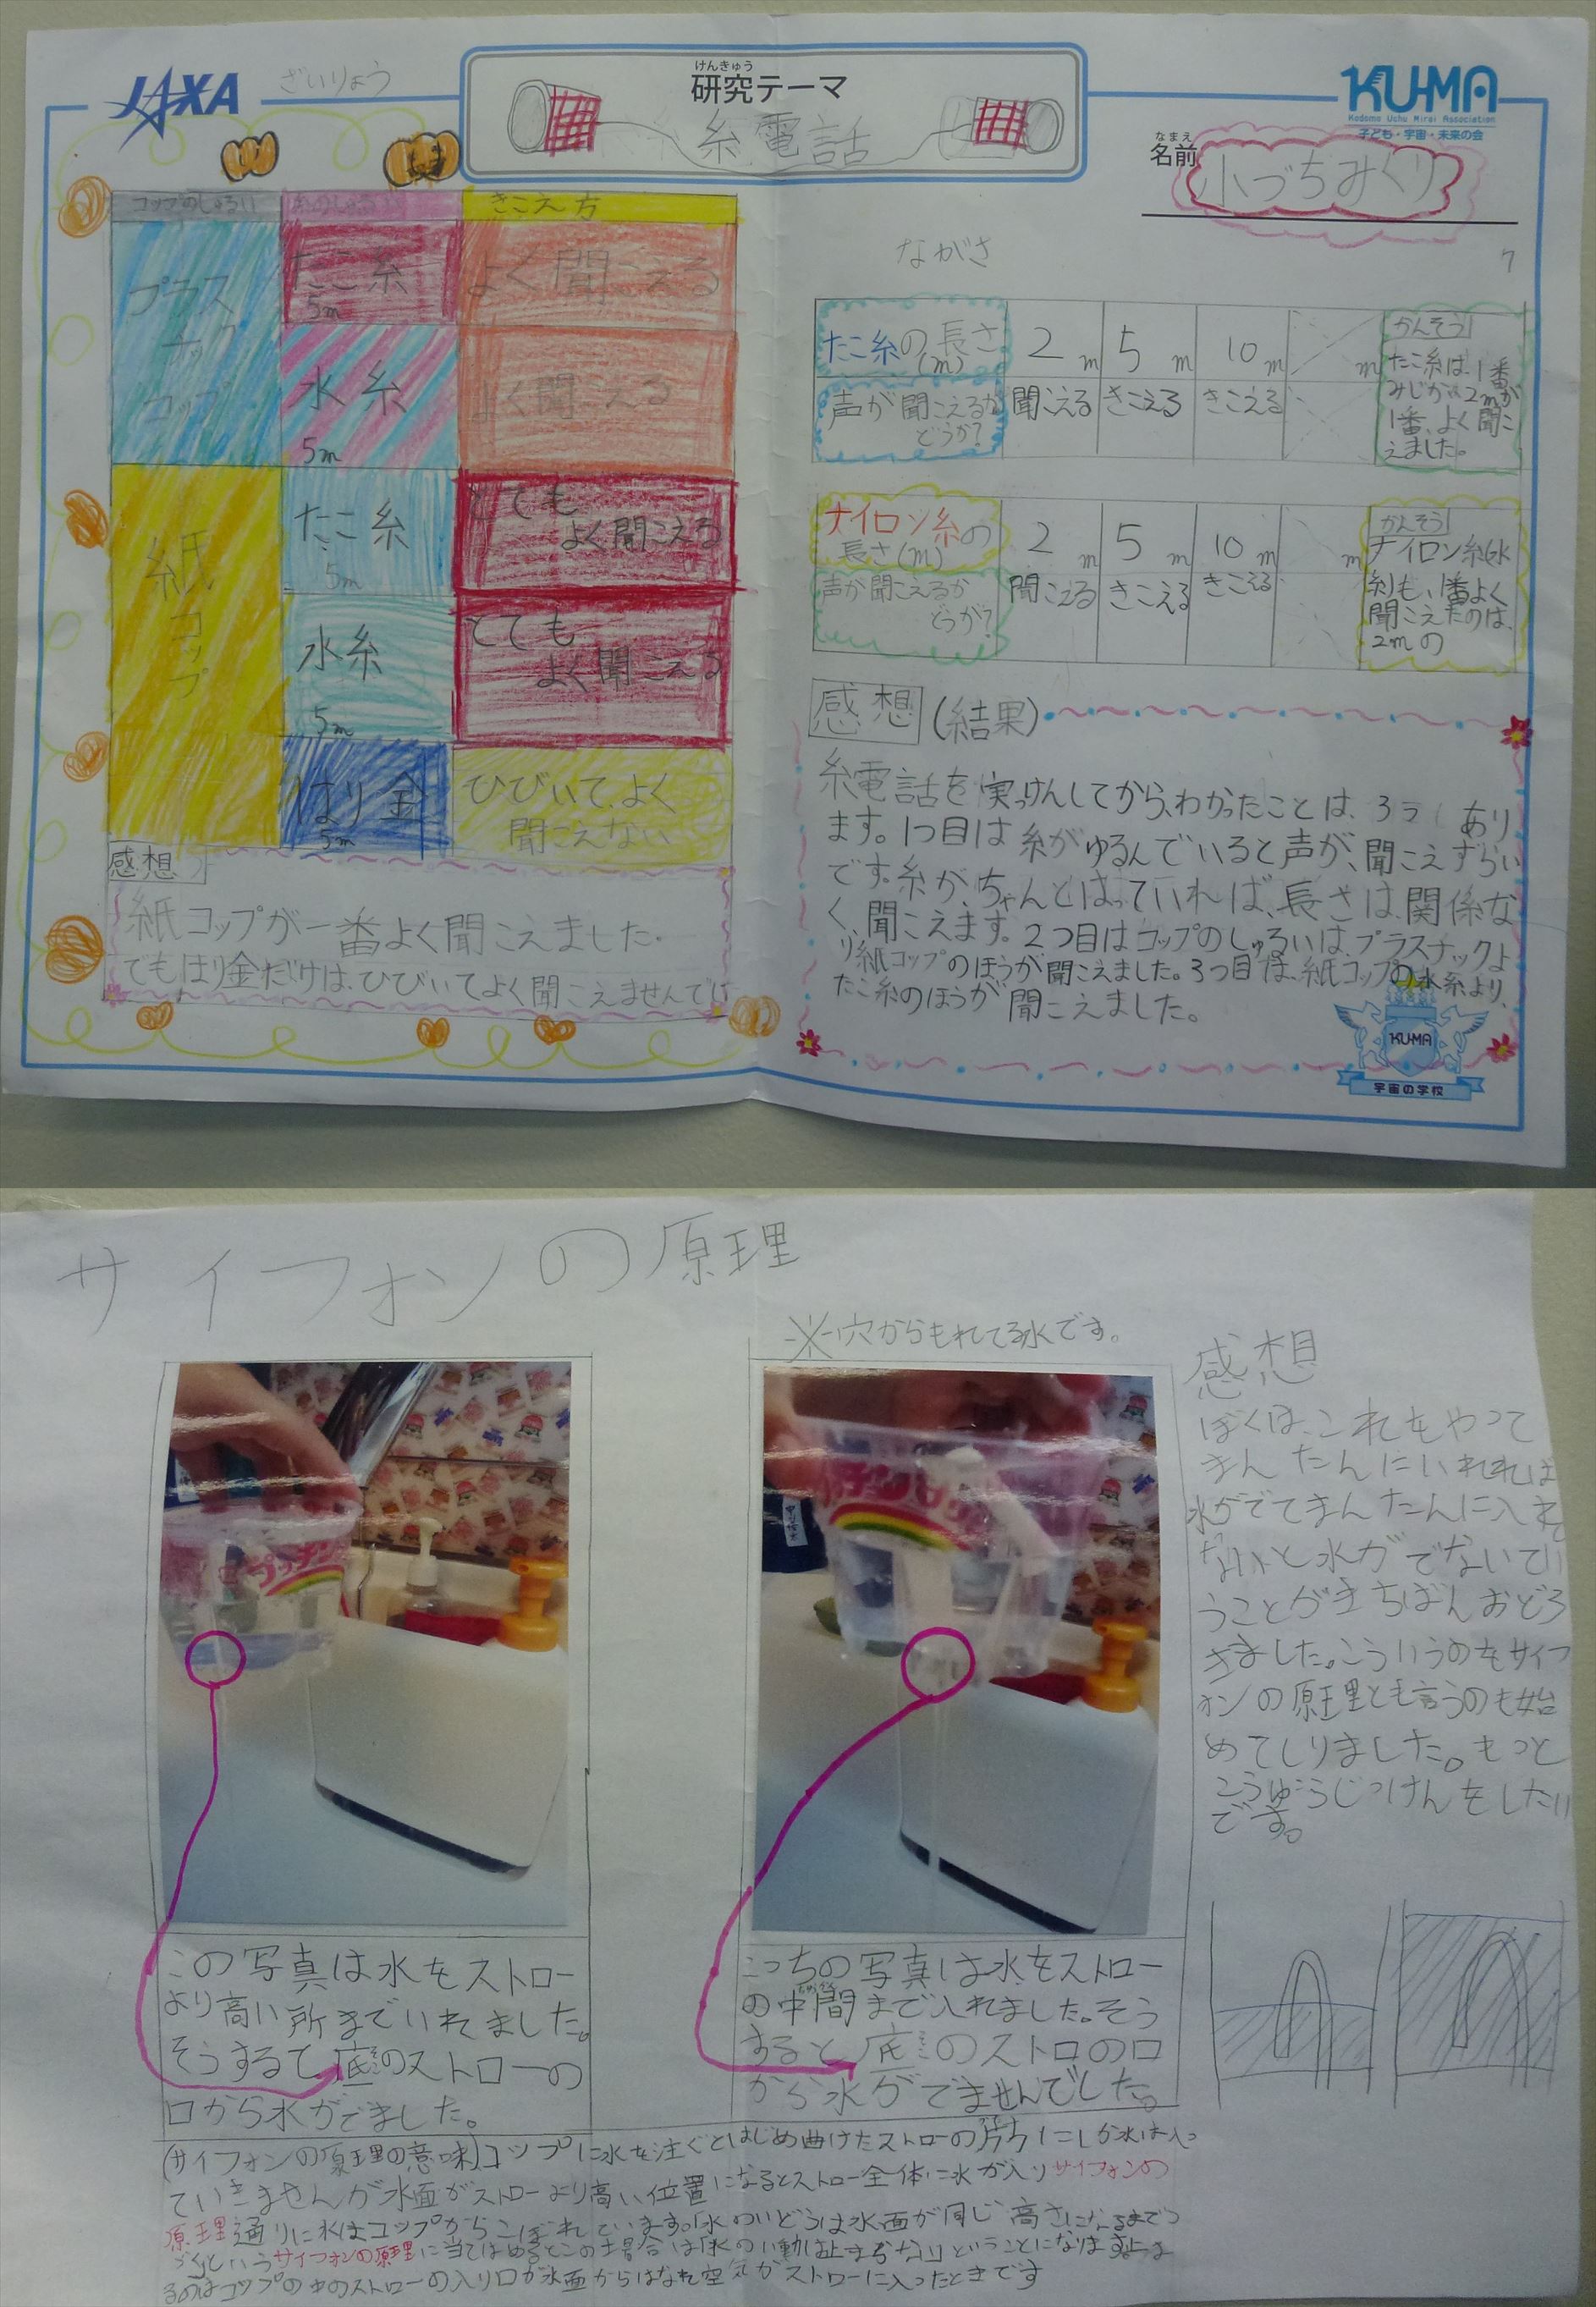 JAXA
ざいりょう
けんきゅう
研究テーマ
糸電話
KU-MA
Kodomo Uchu Mirai Association
子ども・宇宙・未来の会
なまえ
名前
小づちみくり
コップのしゅるい
糸のしゅるい
きこえ方
プラス
チック
コップ
たこ糸
5m
よく聞こえる
水糸
5m
よく聞こえる
紙
コップ
たこ糸
5m
とても
よく聞こえる
水糸
5m
とても
よく聞こえる
はり金
5m
ひびいて、よく
聞こえない
感想
紙コップが一番よく聞こえました.
でもはり金だけは、ひびいてよく聞こえませんでし
ながさ
7
たこ糸の長さ
(m)
2m
5m
10m
m
声が聞こえるか
どうか?
聞こえる
きこえる
きこえる
かんそう
たこ糸は、1番
みじかい2mが
1番、よく聞こ
えました。
ナイロン糸の
長さ(m)
2m
5m
10m
m
声が聞こえるか
どうか?
聞こえる
きこえる
きこえる
かんそう
ナイロン糸(水
糸)も、1番よく
聞こえたのは、
2mの
感想(結果)
糸電話を実っけんしてから、わかったことは、3つ あり
ます。1つ目は糸がゆるんでいると声が、聞こえずらい
です.糸が、ちゃんとはっていれば、長さは、関係な
く、聞こえます。2つ目はコップのしゅるいは、プラスチックよ
り紙コップのほうが聞こえました。3つ目は、紙コップの水糸より、
たこ糸のほうが聞こえました。
KU-MA
宇宙の学校
サイフォンの原理
※穴からもれてる水です。
感想
ぼくは、これをやって
まんたんにいれれば
水がでてまんたんに入れ
ないと水がでないてい
うことがいちばんおどろ
きました。こういうのをサイフ
ォンの原理とも言うのも始
めてしりました。もっと
こうゆうじっけんをしたい
です。
プッチン
この写真は水をストロー
より高い所までいれました。
そうするて底のストローの
口から水がでました。
こっちの写真は水をストロー
の中間まで入れました。そう
すると底のストロの口
から水がでませんでした。
(サイフォンの原理の意味)コップに水を注ぐとはじめ曲げたストローの片方にしか水は入っ
ていきませんが水面がストローより高い位置になるとストロー全体に水が入りサイフォンの
原理通りに水はコップからこぼれています。「水のいどうは水面が同じ高さになるまでつ
づく」というサイフォンの原理に当てはめるとこの場合は「水の移動は止まらない」ということになります。止ま
るのはコップの中のストローの入り口が水面からはなれ空気がストローに入ったときです